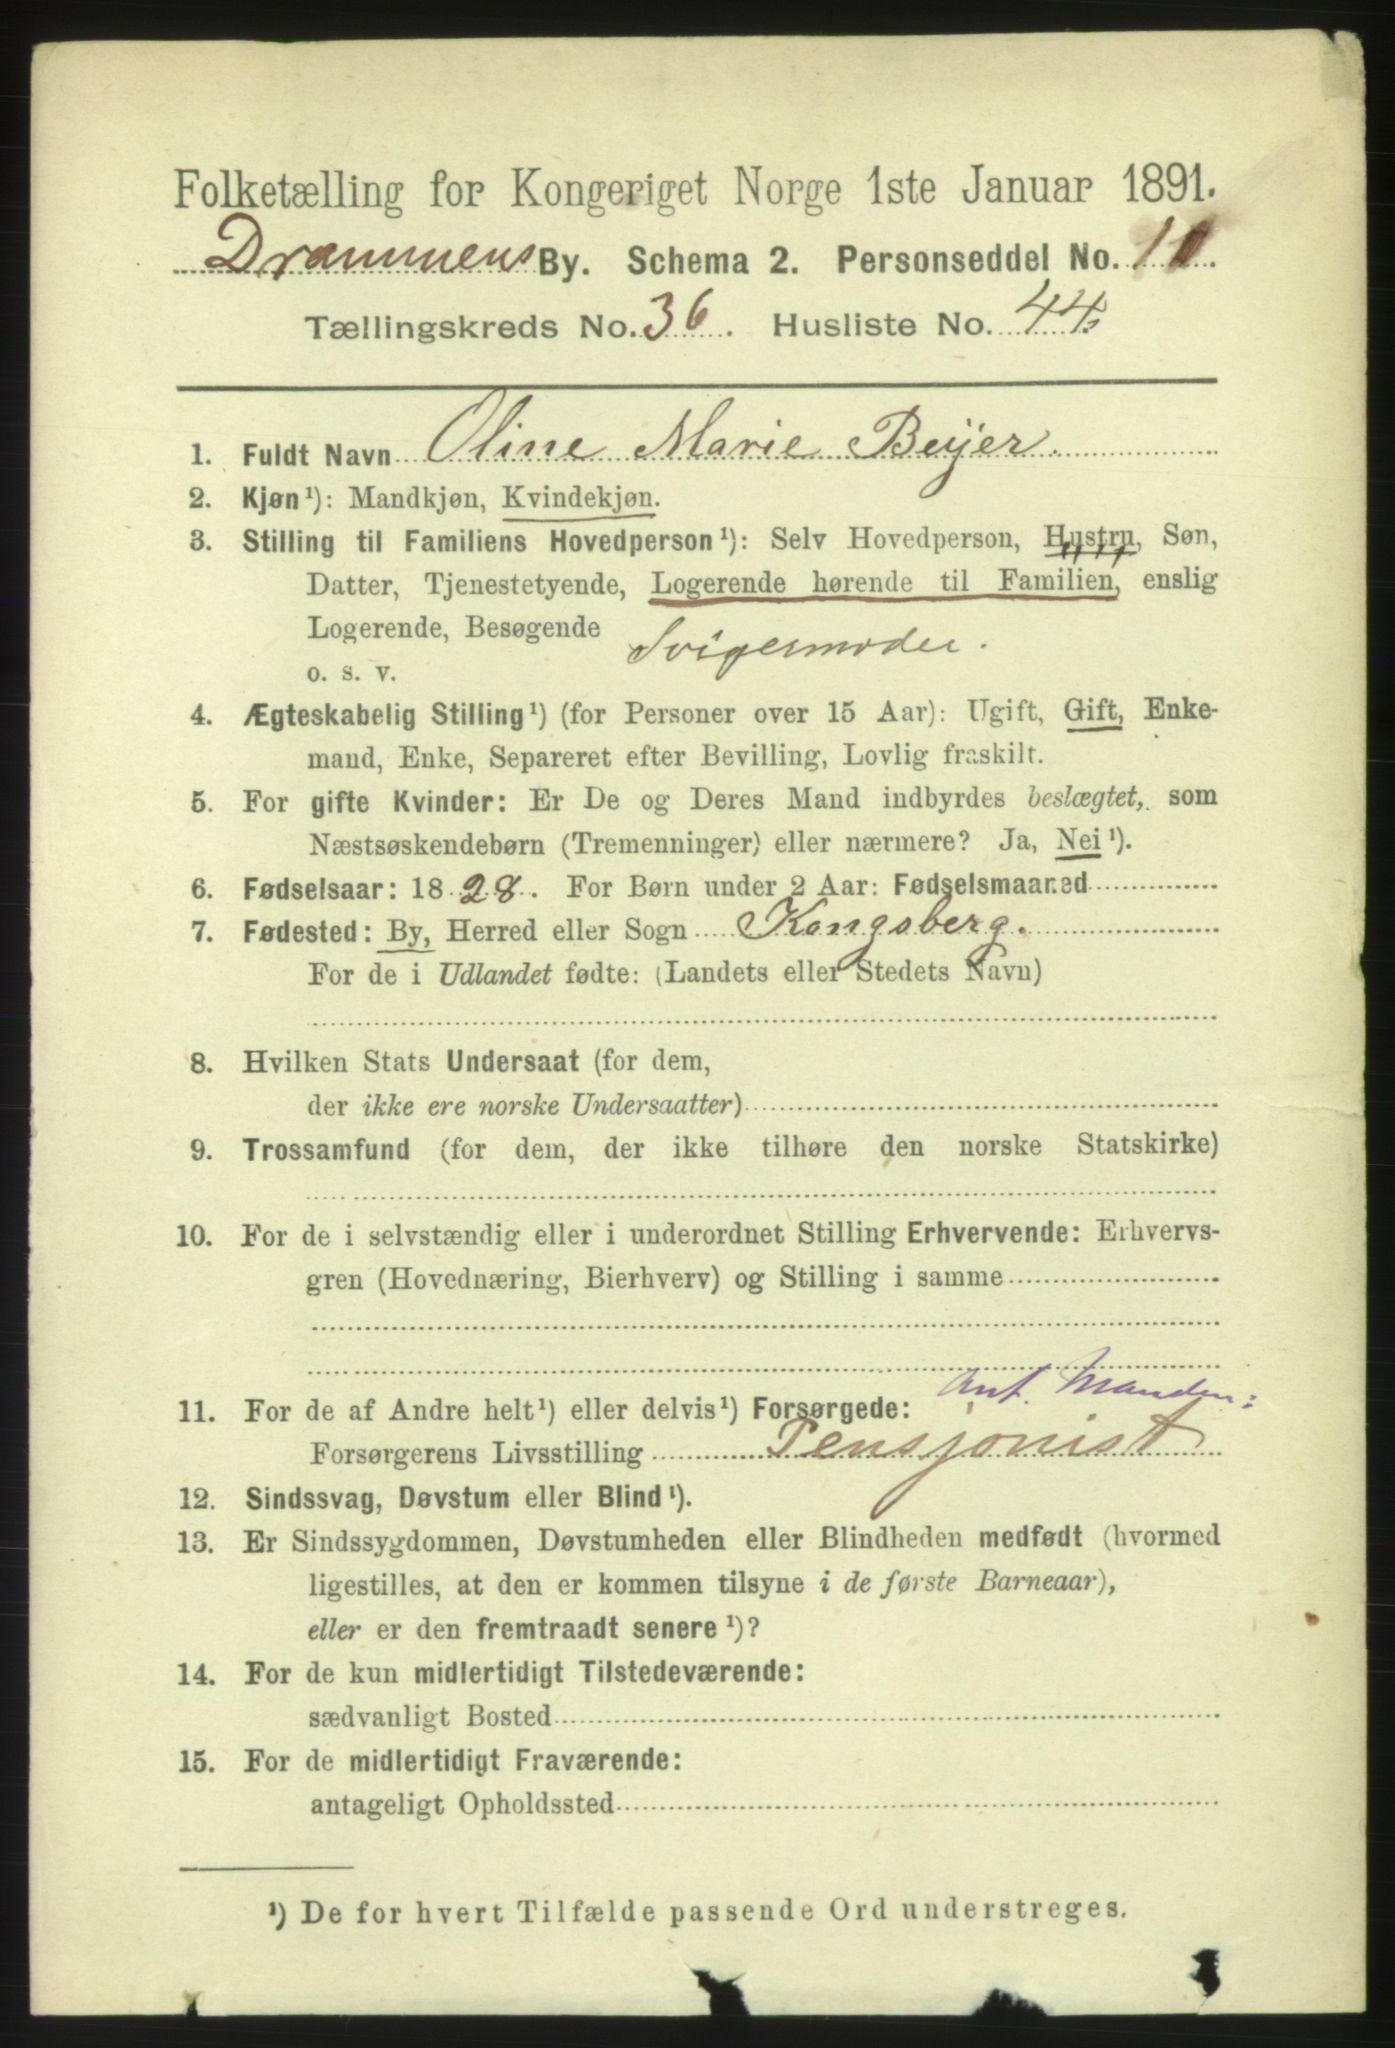 Folketælling for Kongeriget Norge 1ste Januar 1891.
Drammens By. Schema 2. Personseddel No. 10.
Tællingskreds No. 36. Husliste No. 44.
1. Fuldt Navn Oline Marie Beijer.
2. Kjøn ¹): Mandkjøn, Kvindekjøn.
3. Stilling til Familiens Hovedperson ¹): Selv Hovedperson, Hustru, Søn,
Datter, Tjenestetyende, Logerende hørende til Familien, enslig
Logerende, Besøgende Svigermoder.
o. s. v.
4. Ægteskabelig Stilling ¹) (for Personer over 15 Aar): Ugift, Gift, Enke-
mand, Enke, Separeret efter Bevilling, Lovlig fraskilt.
5. For gifte Kvinder: Er De og Deres Mand indbyrdes beslægtet, som
Næstsøskendebørn (Tremenninger) eller nærmere? Ja, Nei ¹).
6. Fødselsaar: 1828. For Børn under 2 Aar: Fødselsmaaned
7. Fødested: By, Herred eller Sogn Kongsberg.
For de i Udlandet fødte: (Landets eller Stedets Navn)
8. Hvilken Stats Undersaat (for dem,
der ikke ere norske Undersaatter)
9. Trossamfund (for dem, der ikke tilhøre den norske Statskirke)
10. For de i selvstændig eller i underordnet Stilling Erhvervende: Erhvervs-
gren (Hovednæring, Bierhverv) og Stilling i samme
Ant. Manden:
11. For de af Andre helt ¹) eller delvis ¹) Forsørgede:
Forsørgerens Livsstilling Pensjonist
12. Sindssvag, Døvstum eller Blind ¹).
13. Er Sindssygdommen, Døvstumheden eller Blindheden medfødt (hvormed
ligestilles, at den er kommen tilsyne i de første Barneaar),
eller er den fremtraadt senere ¹)?
14. For de kun midlertidigt Tilstedeværende:
sædvanligt Bosted
15. For de midlertidigt Fraværende:
antageligt Opholdssted
¹) De for hvert Tilfælde passende Ord understreges.